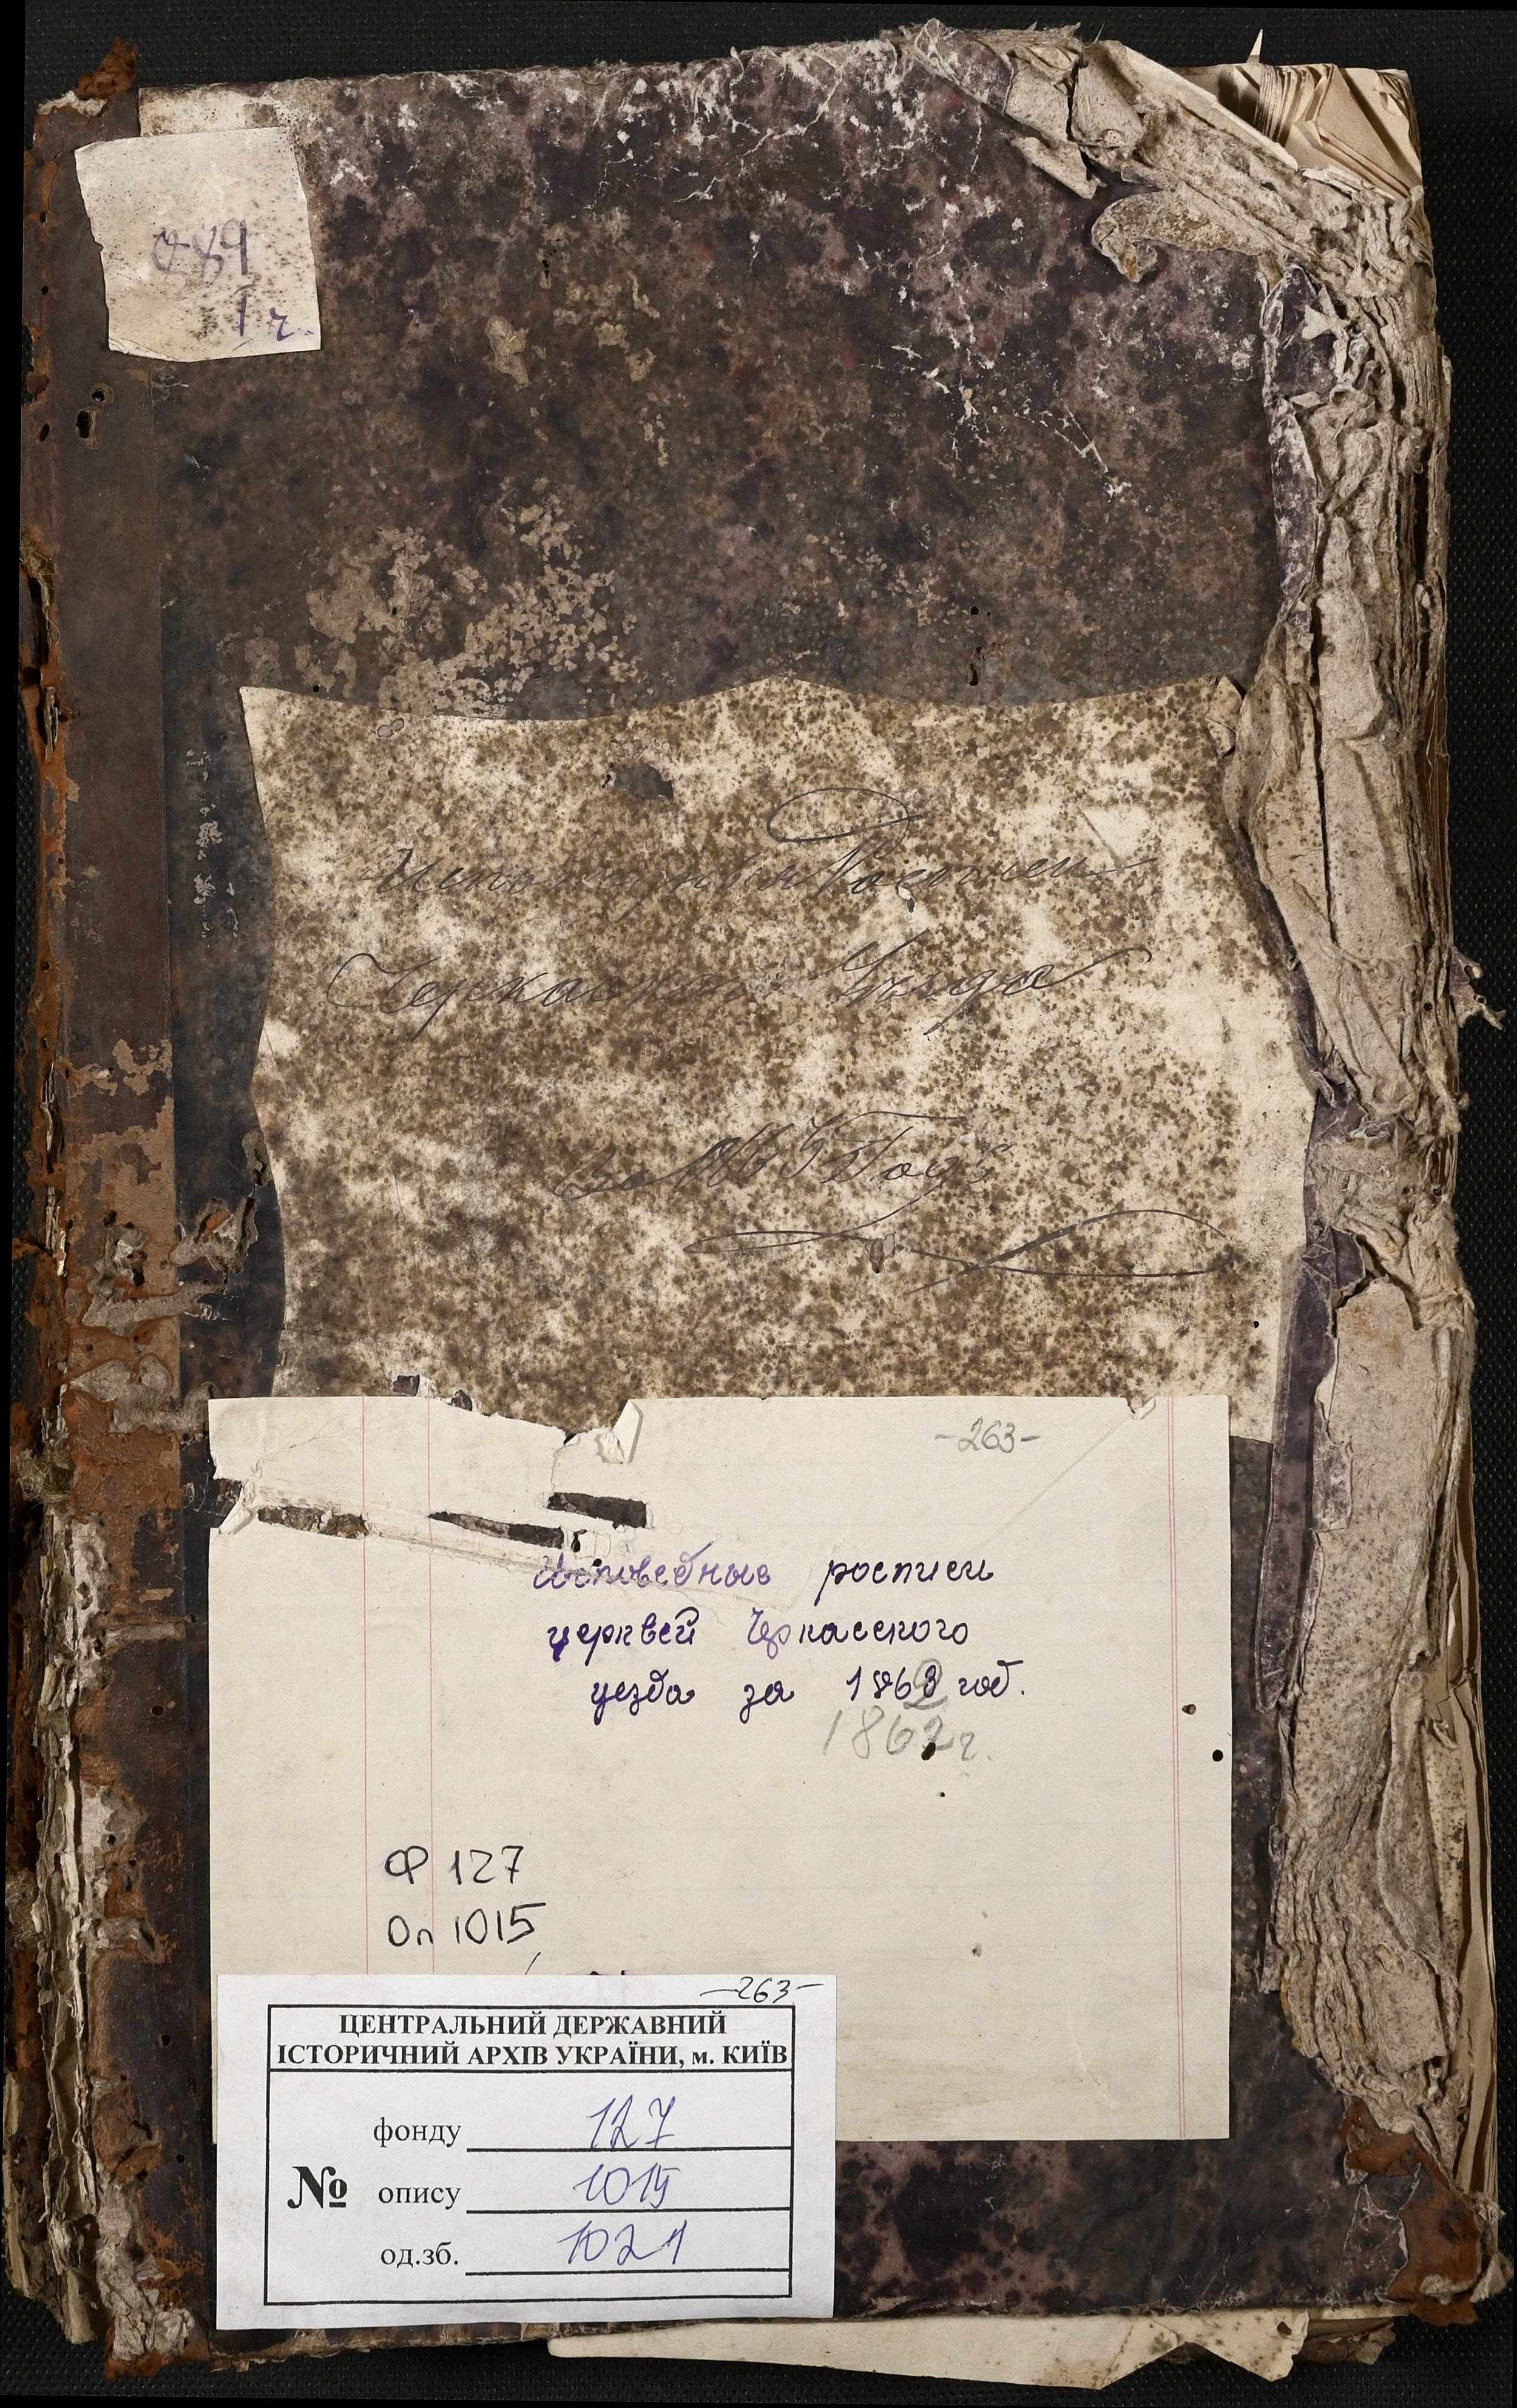 089
I ч.
Исповедныя Росписи
Черкаскаго Уезда
За 186 Годъ
-263-
Исповедные росписи
церквей Черкасского
уезда за 1863 год.
1862 г.
Ф 127
Оп 1015
-263-
ЦЕНТРАЛЬНИЙ ДЕРЖАВНИЙ
ІСТОРИЧНИЙ АРХІВ УКРАЇНИ, м. КИЇВ
фонду 127
№ опису 1015
од.зб. 1021